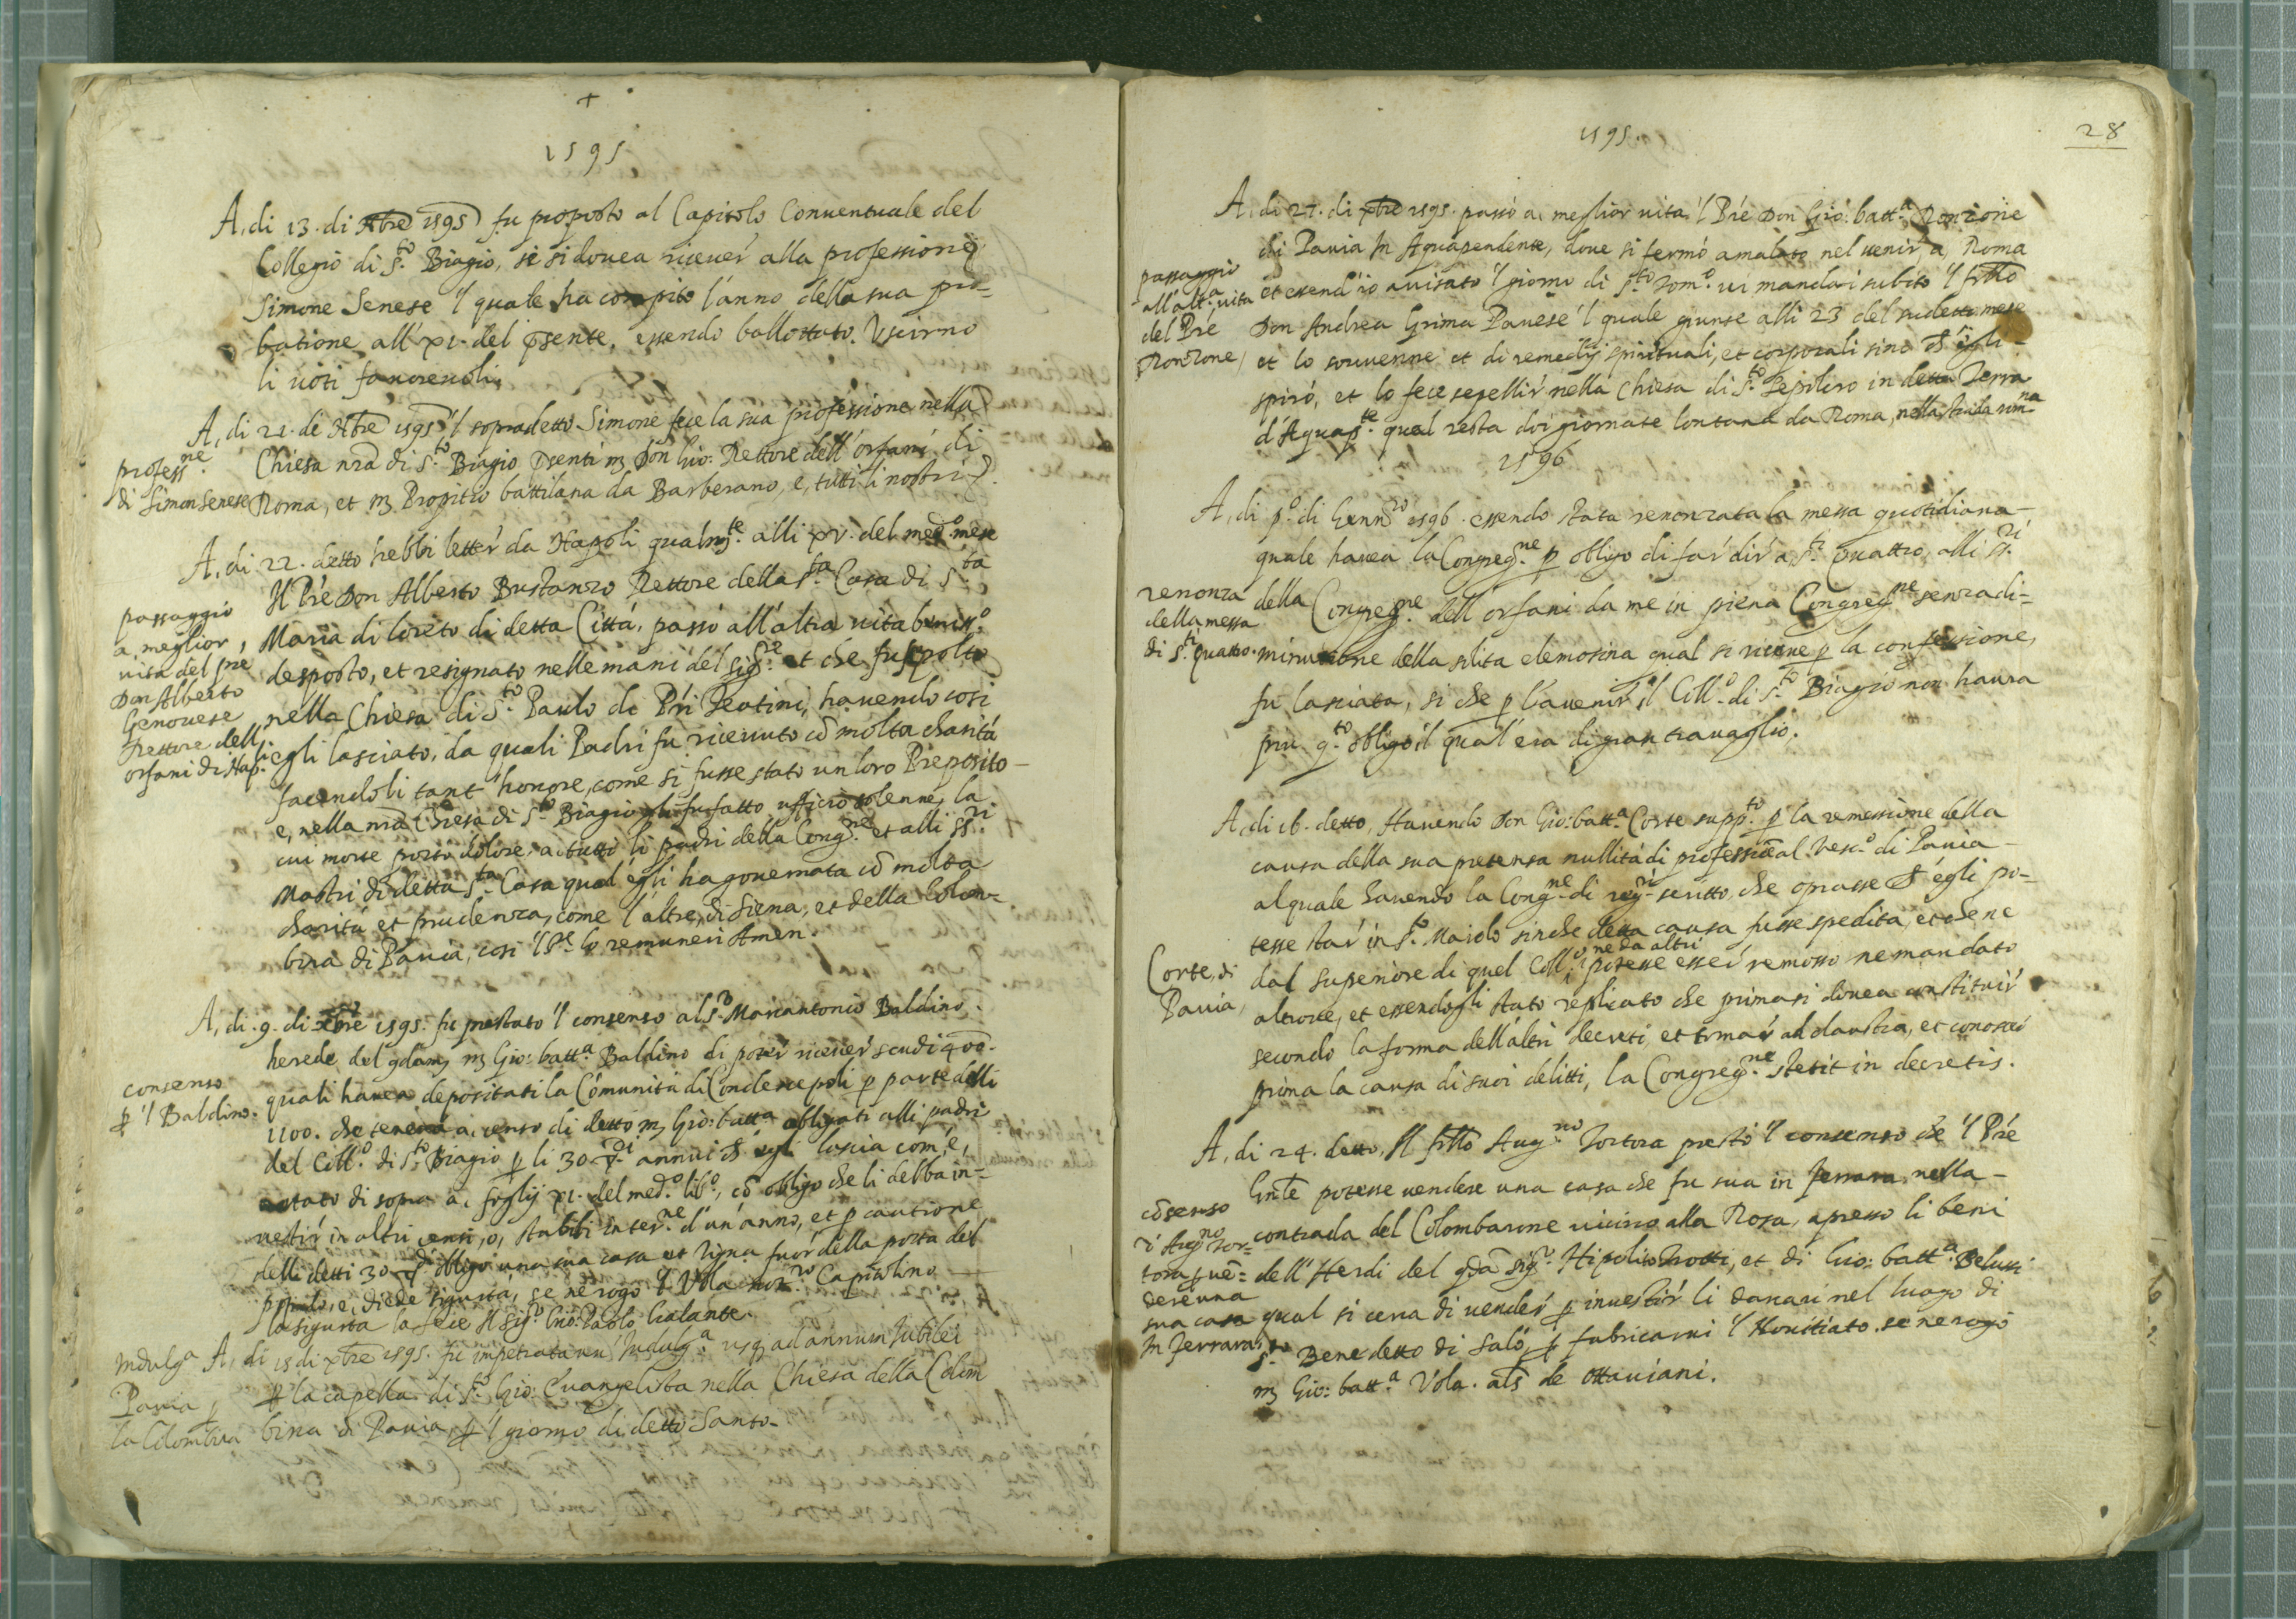 +
1595
A, di 13. di Nbre 1595 fu proposto al Capitolo Conuentuale del
Collegio di S.to Biagio, se si douea riceuer alla professione
Simone Senese 'l quale ha compito l'anno della sua pro=
batione all' XI. del pñte, essendo ballottato. Uscirno
li uoti fauoreuoli.
profess.ne
di Simon Senese
A, di 21. de Nbre 1595 'l sopradetto Simone fece la sua professione nella
Chiesa nrã di S.to Biagio pñti m Don Gio: Rettore dell' orfani di
Roma, et m Propitio battilana da Barberano, e, tutti li nostri P.
passaggio
a, meglior
uita del Pre
Don Alberto
Genouese
Rettore dell'
orfani di Nap.li
A, di 22. detto hebbi letter da Napoli qualm.te alli XV. del med.o mese
Il Prè Don Alberto Bustanzo Rettore della S.ta Casa di S.ta
Maria di loreto di detta Città, passò all'altra uita beniss.o
desposto, et resignato nelle mani del Sig.re et che fu sepolto
nella Chiesa di S.to Paulo de Pri Teatini, hauendo cosi
egli lasciato, da quali Padri fu riceuuto cõ molta charità
facendoli tant' honore, come si fusse stato un loro Preposito
e, nella nrã Chiesa di S.to Biagio gli fu fatto ufficio solenne, la
cui morte portò dolore, a, tutti li padri della Cong.ne et alli SS.ri
Mastri di detta S.ta Casa qual egli ha gouernata cõ molta
charità et prudenza, come l'altre, di Siena, et della Colom=
bina di Pauia, cosi 'l S.re lo remuneri Amen.
consenso
p 'l Baldino.
A, di .9. di xbrè 1595. fu prestato 'l consenso al S.r Marcantonio Baldino
herede del qdam m Gio: batt.a Baldino di poter riceuer scudi 400.
quali hauea depositati la Cõmunità di p parte delli
1100. che teneua a, censo di detto m Gio: batt.a obligati alli padri
del Coll.o di S.to Biagio p li 30 annui ch' egli lascia com' è,
notato di sopra a, foglij XI. del med.o lib.o, cõ obligo che li debba in=
uestir in altri censi, o, stabili inter.ne d'un' anno, et p cautione
delli detti 30 obligò una sua casa et Vigna fuor della porta del
popolo, e, diede sigurtà, se ne rogò 'l Vola not.ro Capitolino
la sigurtà la fece Il Sig.r Gio: Paolo Galante.
Indulg.a
Pauia p
la Colombina
A, di 15 di xbre 1595. fu impetrata un' Indulg.a usq ad annum Iubilei
p la capella di S.to Gio: Euangelista nella Chiesa della Colom
bina di Pauia, p 'l giorno di detto Santo.
1595.
28
passaggio
all'alt.a uita
del Prè
Ronzone
A, di 27. di xbre 1595. passò a, meglior uita 'l Prè Don Gio: batt.a Ronzone
di Pauia In Aquapendente, doue si fermò amalato nel uenir, a, Roma
et essend' io auisato 'l giorno di S.to Tom.o ui mandai subito 'l frllo
Don Andrea Grima Pauese 'l quale giunse alli 23 del sudetto mese
et lo souuenne et di remedij spirituali, et corporali sino ch' egli
spirò, et lo fece sepellir nella Chiesa di S.to Sepolcro in detta Terra
d'Aquap.te qual resta doi giornate lontana da Roma, nella strada rom.na
1596
renonza
della messa
di S.ti quattro.
A, di p.o di Genn.ro 1596. essendo stata renonzata la messa quotidiana
quale hauea la Congreg.ne p obligo di far dir a S.ti Quattro, alli SS.ri
della Congreg.ne dell' orfani da me in piena Congreg.ne senza di=
minutione della solita elemosina qual si riceue p la confessione,
fu lasciata, si che p l'auenir il Coll.o di S.to Biagio non haura
piu q.to obligo il qual' era di gran trauaglio.
Corte, di
Pauia
A, di 16. detto, Hauendo Don Gio: batt.a Corte supp.to p la remessione della
causa della sua pretensa nullità di professione al Vesc.o di Pauia
al quale hauendo la Cong.ne di reg.ri scritto, che oprasse ch' egli po=
tesse star in S.to Maiolo sinche detta causa fusse spedita, et che ne
dal superiore di quel Coll.o ne da altri potesse esser remosso ne mandato
altroue, et essendogli stato replicato che prima si douea constituir
secondo la forma dell'altri decreti, et tornar ad claustra, et conoscer
prima la causa di suoi delitti, la Congreg.ne stetit in decretis.
cõsenso
d' Aug.no Tor=
tora p uẽ=
dere una
sua casa
In Ferrara
A, di 24. detto, Il frllo Aug.no Tortora prestò 'l consenso che 'l Prè
Gnle potesse uendere una casa che fu sua in Ferrara, nella
contrada del Colombarone uicino alla Rosa, apresso li beni
dell' Herdi del qdã Sig.r Hipolito Trotti, et di Gio: batt.a Belussi
qual si cerca di uender p inuestir li danari nel luogo di
S.to Benedetto di Salò, p fabricarui 'l Nouitiato. se ne rogò
m Gio: batt.a Vola. als de Ottauiani.